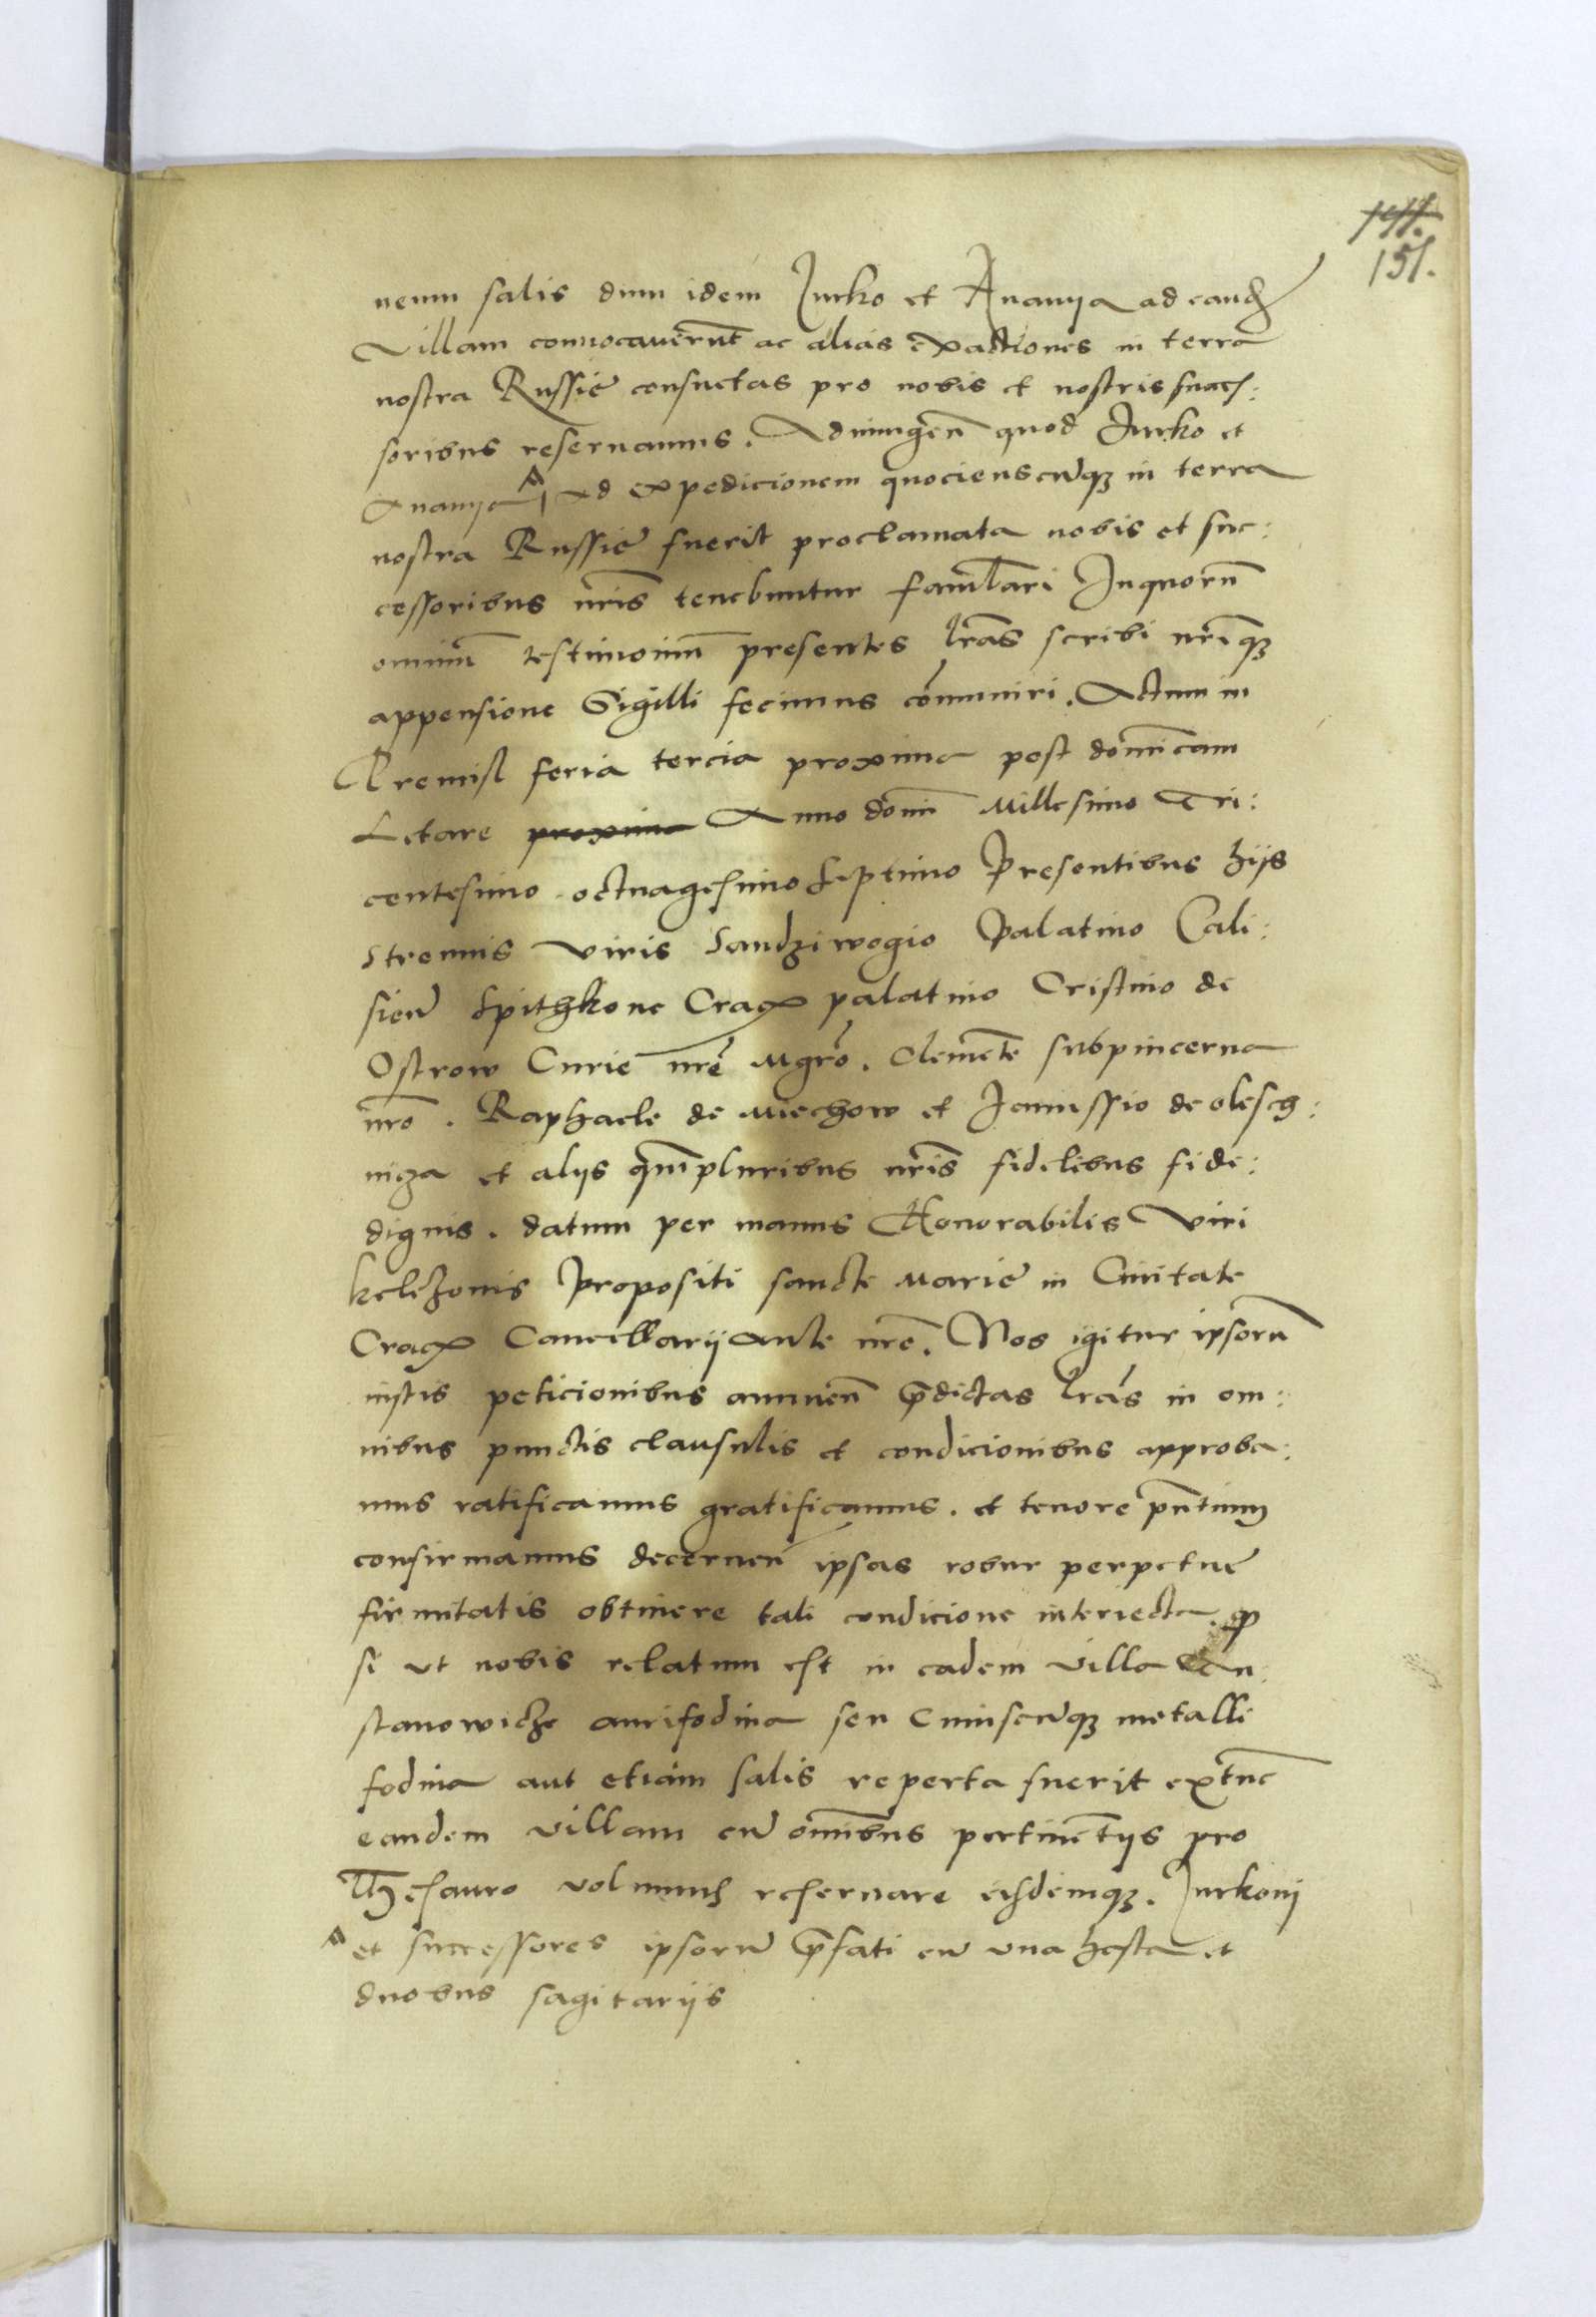 151.
neum salis dum idem Jurko et Ananya ad eand
Villam convocaverunt ac alias exactiones in terra
nostra Russie consuetas pro nobis et nostris succes:
soribus reservamus. Adiungen quod Jurko et
Ananya ^ ad expedicionem quocienscunq in terra
nostra Russie fuerit proclamata nobis et suc:
cessoribus nris tenebuntur famulari Inquorum
omnium testimonium presentes lras scribi nriq
appensione Sigilli fecimus communiri. Actum in
Premisl feria tercia proxima post dominicam
Letare proxima Anno domini Millesimo Tri:
centesimo octuagesimo septimo Presentibus hijs
strenuis viris Sandziwogio Palatino Cali:
sien Spithkone Crac palatino Cristino de
Ostrow Curie nre Mgro. Clemente subpincerna
nro. Raphaele de Miechow et Janussio de olesch:
niza et alijs qmpluribus nris fidelibus fide:
dignis. datum per manus Honorabilis Viri
kelezonis Propositi sancte Marie in Civitate
Crac Cancellarij aule nre. Nos igitur ipsorum
iustis peticionibus annuen pdictas lras in om:
nibus punctis clausulis et condicionibus approba:
mus ratificamus gratificamus. et tenore pntium
confirmamus decernen ipsas robur perpetue
firmitatis obtinere tali condicione interiecta. q
si ut nobis relatum est in eadem villa
stanowicze aurifodina seu Cuiuscunq metalli
fodina aut etiam salis reperta fuerit extunc
eandem villam cum omnibus pertinentijs pro
Thesauro volumus reservare eisdemq. Jurkoni
^ et successores ipsorum pfati cum una hasta et
duobus sagitarijs